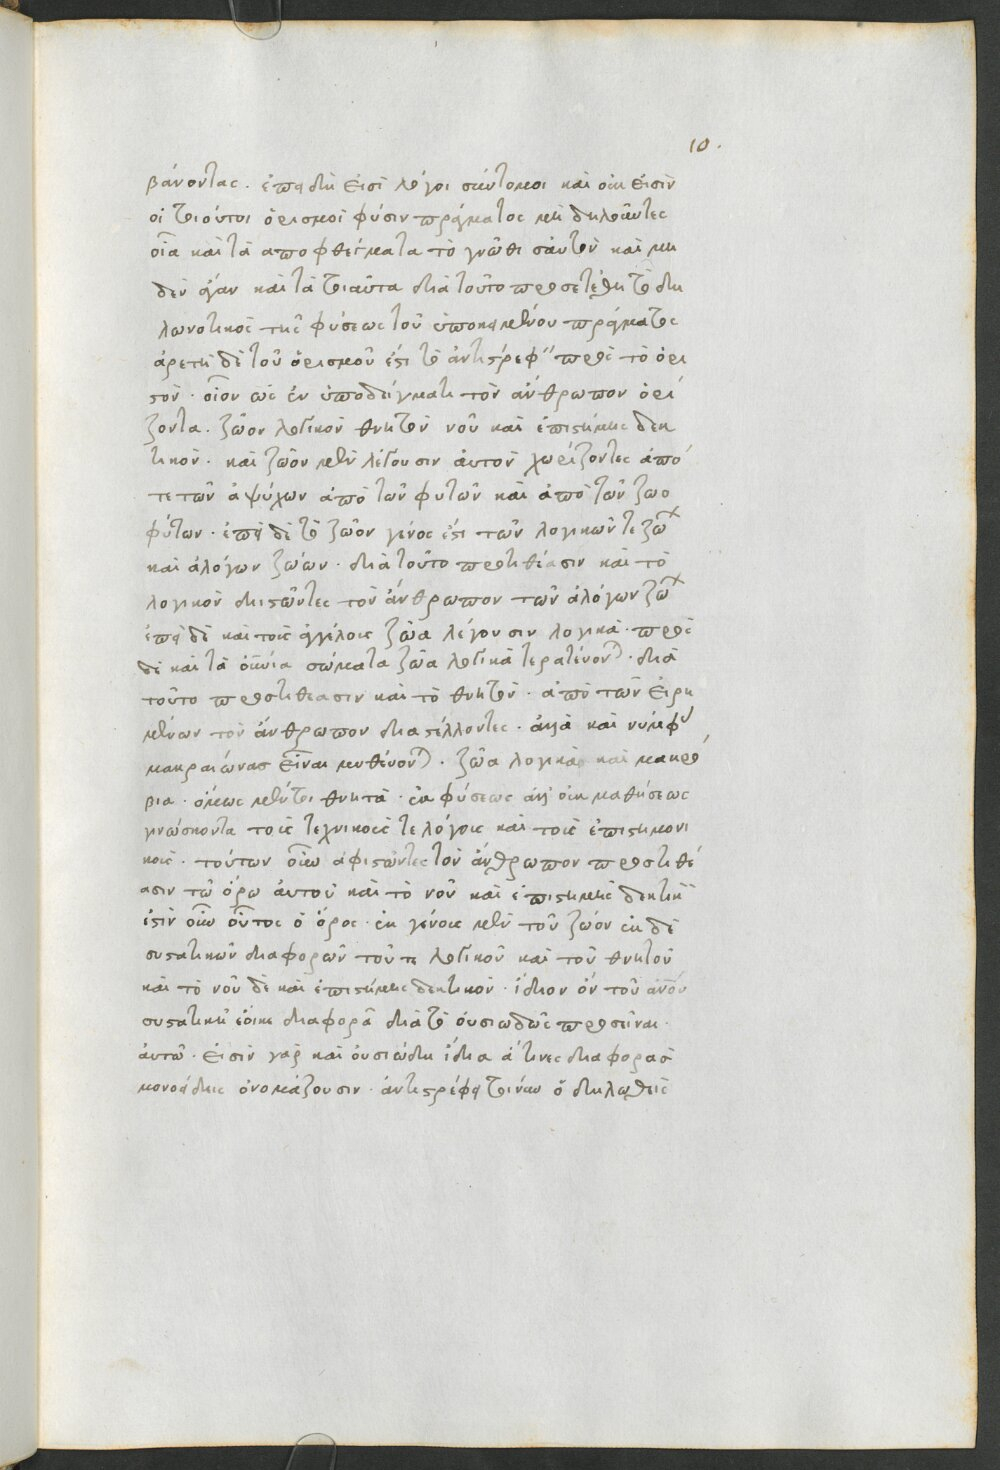 10.
βάνοντας. ἐπειδὴ εἰσὶ λόγοι σύντομοι καὶ οὐκ εἰσὶν
οἱ τοιοῦτοι ὁρισμοὶ φύσιν πράγματος μὴ δηλοῦντες
οἷα καὶ τὰ αποφθέγματα τὸ γνῶθι σαυτὸν καὶ μη
δὲν ἄγαν καὶ τὰ τοιαῦτα διὰ τοῦτο προσετέθη τὸ δη
λωνοτικὸς τῆς φύσεως τοῦ ὑποκειμένου πράγματος
ἀρετὴ δὲ τοῦ ὁρισμοῦ ἐστι τὸ ἀντιστρέφειν πρὸς τὸ ὁρι
στὸν. οἷον ὡς ἐν ὑποδείγματι τὸν ἄνθρωπον ὁρί
ζονται. ζῶον λογικὸν θνητὸν νοῦ καὶ ἐπιστήμης δεκ
τικὸν. καὶ ζῶον μὲν λέγουσιν ἀυτὸν χωρίζοντες ἀπό
τε τῶν ἀψύχων ἀπὸ τῶν φυτῶν καὶ ἀπὸ τῶν ζωο
φύτων. ἐπεὶ δὲ τὸ ζῶον γένος ἐστι τῶν λογικῶν τε ζώων
καὶ ἀλόγων ζώων. διὰ τοῦτο προστιθέασιν καὶ τὸ
λογικὸν διιστῶντες τὸν ἄνθρωπον τῶν ἀλόγων ζώων
ἐπεὶ δὲ καὶ τοὺς ἀγγέλους ζῶα λέγουσιν λογικὰ. πρὸς
δὲ καὶ τὰ οὐράνια σώματα ζῶα λογικὰ τερατεύονται. διὰ
τοῦτο προστιθέασιν καὶ τὸ θνητὸν. ἀπὸ τῶν εἰρη
μένων τὸν ἄνθρωπον διαστέλλοντες. ἀλλὰ καὶ νύμφας
μακραιώνας εἶναι μυθέυονται. ζῶα λογικὰ καὶ μακρό
βια. ὅμως μέντοι θνητὰ. ἐκ φύσεως ἀλλ' οὐκ μαθήσεως
γινώσκοντα τοὺς τεχνικοὺς τε λόγους καὶ τοὺς ἐπιστημονι
κοὺς. τούτων οὖν ἀφιστῶντες τὸν ἄνθρωπον προστιθέ
ασιν τῶ ὅρω ἀυτοῦ καὶ τὸ νοῦ καὶ ἐπιστήμης δεκτικὸν
ἐστὶν οὖν οὗτος ὁ ὅρος. ἐκ γένους μὲν τοῦ ζώου ἐκ δὲ
συστατικῶν διαφορῶν τοῦ τε λογικοῦ καὶ τοῦ θνητοῦ
καὶ τὸ νοῦ δὲ καὶ ἐπιστήμης δεκτικὸν. ἴδιον ὂν τοῦ ἀνου
συστατικῆ ἔοικε διαφορᾶ διὰ τὸ οὐσιωδῶς προσεῖναι
ἀυτῶ. εἰσὶν γὰρ καὶ οὐσιώδη ἴδια ἅ τινες διαφορὰς
μονοειδεῖς ὀνομάζουσιν. ἀντιστρέφει τοίνυν ὁ δηλωθεὶς